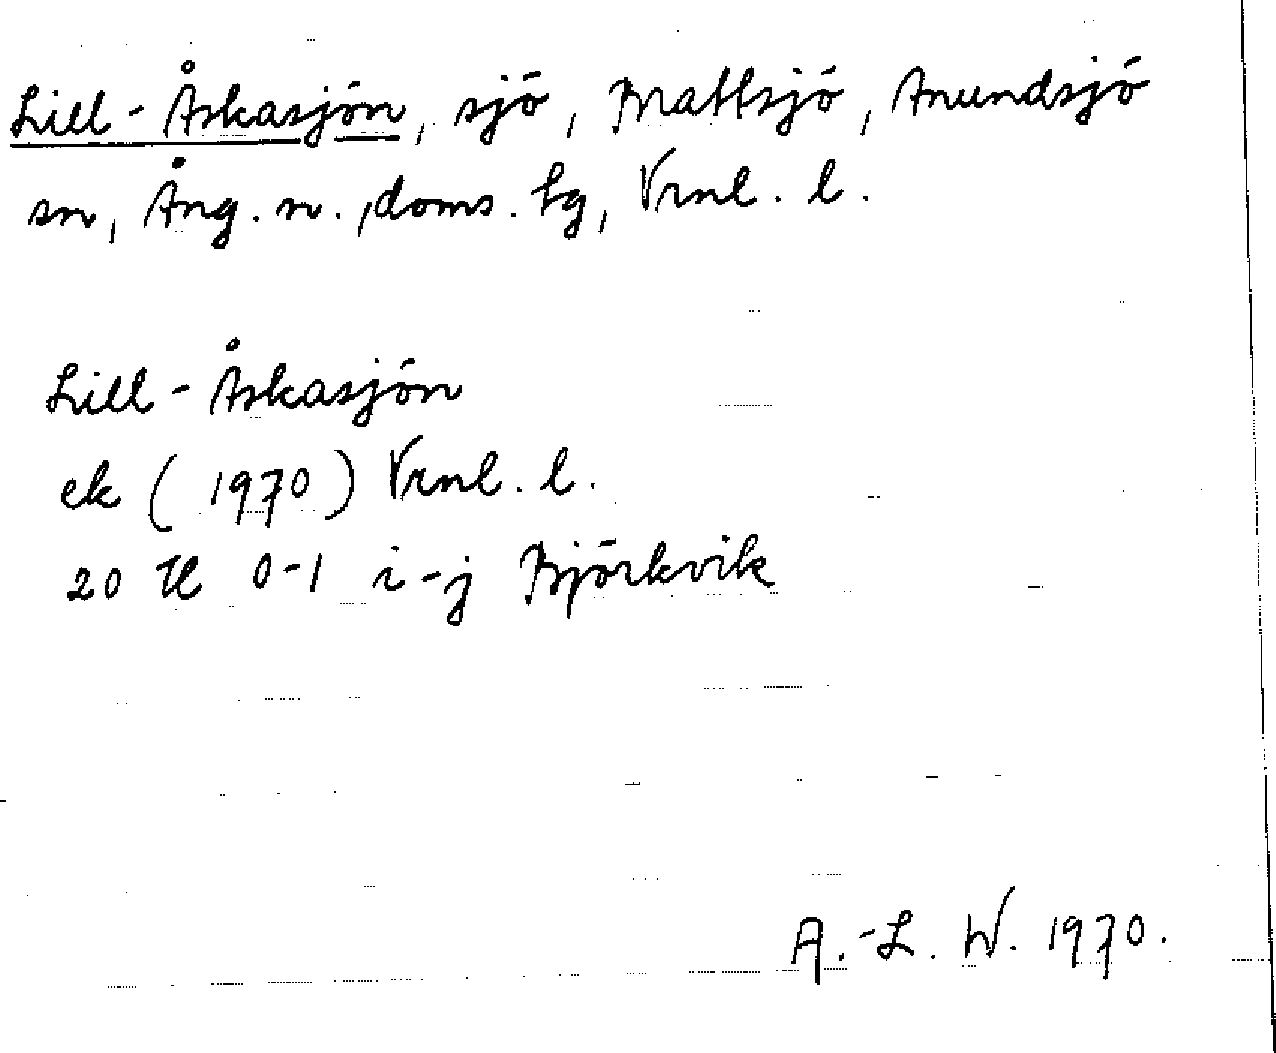 Lill-Åskasjön, sjö, Mattsjö, Anundsjö
sn, Ång. n., doms. lg, Vrnl. l.
Lill-Åskasjön
ek (1970) Vrnl. l.
20 H 0-1 i-j Björkvik
A.-L. W. 1970.